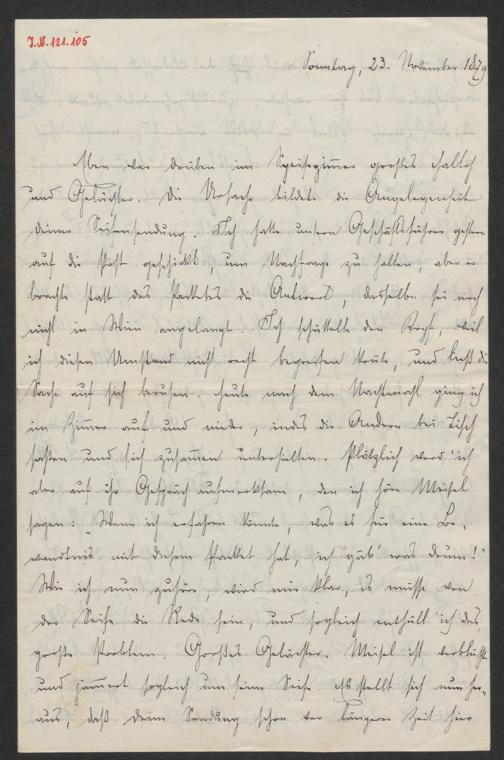 I.N. 121.105
Sonntag, 23. November 1879
Nun war draußen im Speisezimmer großes Hallo
und Gelächter. Die Ursache bildete die Angelegenheit
deiner Seifensendung. Ich hatte unsern Geschäftsführer gestern
auf die Post geschickt, um Nachfrage zu halten, aber er
brachte statt des Packetes die Antwort, dasselbe sei noch
nicht in Wien angelangt. Ich schüttelte den Kopf, weil
ich diesen Umstand nicht recht begreifen konnte, und ließ die
Sache auf sich beruhen. Heute nach dem Nachtmahl ging ich
im Zimmer auf und nieder, indes die Andern bei Tisch
saßen und sich zusammen unterhielten. Plötzlich werd' ich
aber auf ihr Gespräch aufmerksam, denn ich höre Meisel
sagen: "Wenn ich erfahren könnte, was es für eine Be-
wandtnis mit diesem Packet hat, ich gäb' was drum!"
Wie ich nun zuhöre, wird mir klar, es müsse von
der Seife die Rede sein, und sogleich enthüll' ich das
große Problem. Großes Gelächter. Meisel ist verblüfft
und jammert sogleich um seine Seife. Es stellt sich nun her-
aus, daß deine Sendung schon vor längerer Zeit hier